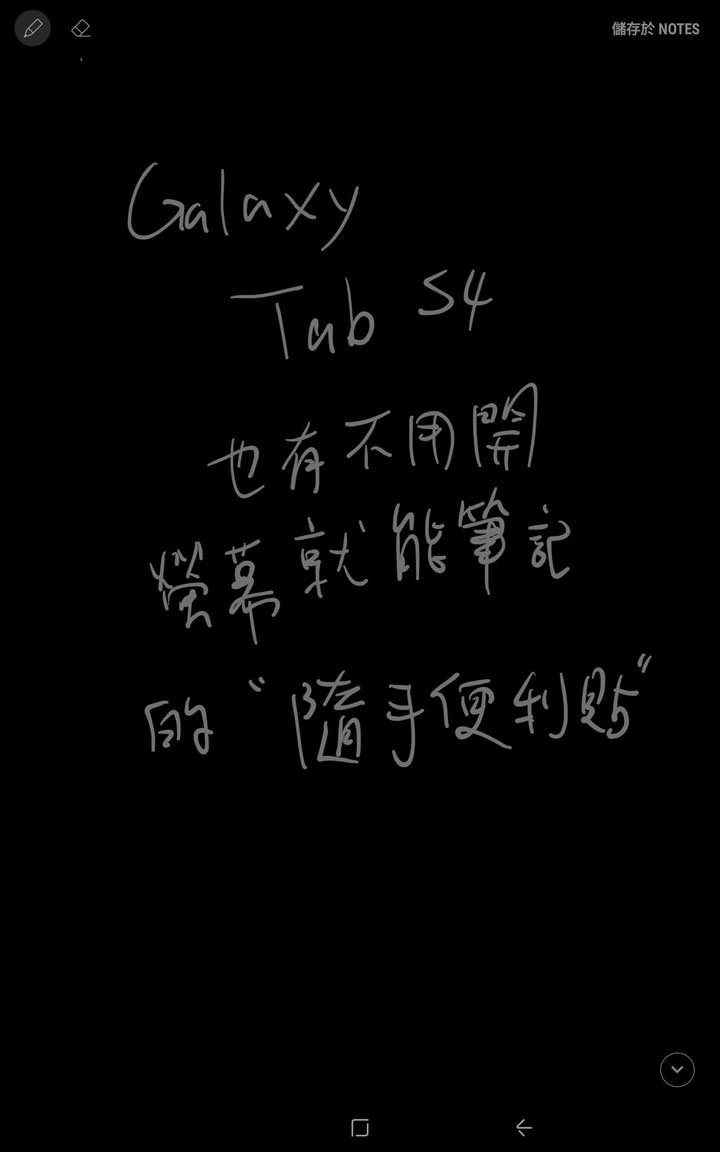 儲存於 NOTES
Galaxy
Tab S4
也有不用開
螢幕就能筆記
的“隨手便利貼”